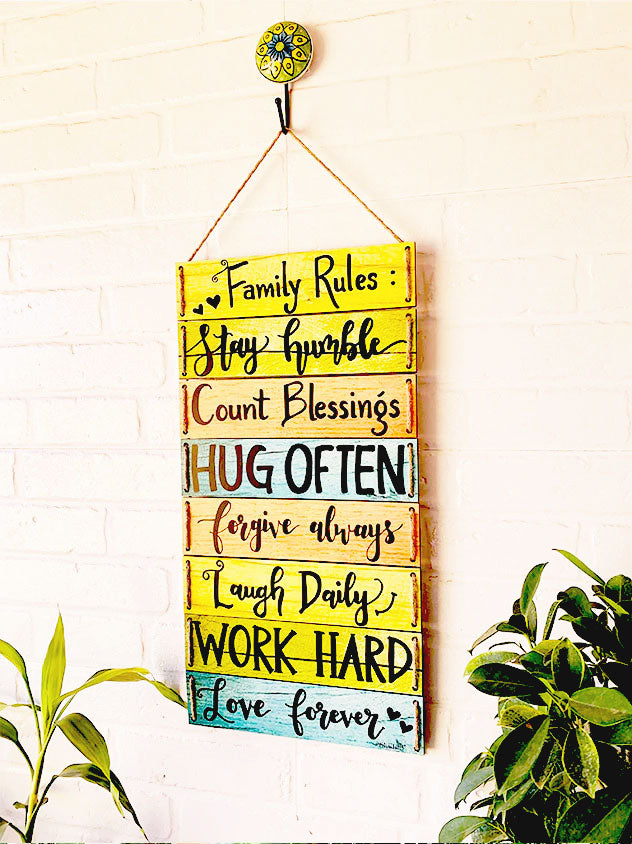 Family Rules :
Stay humble
Count Blessings
HUG OFTEN
forgive always
Laugh Daily
WORK HARD
Love forever